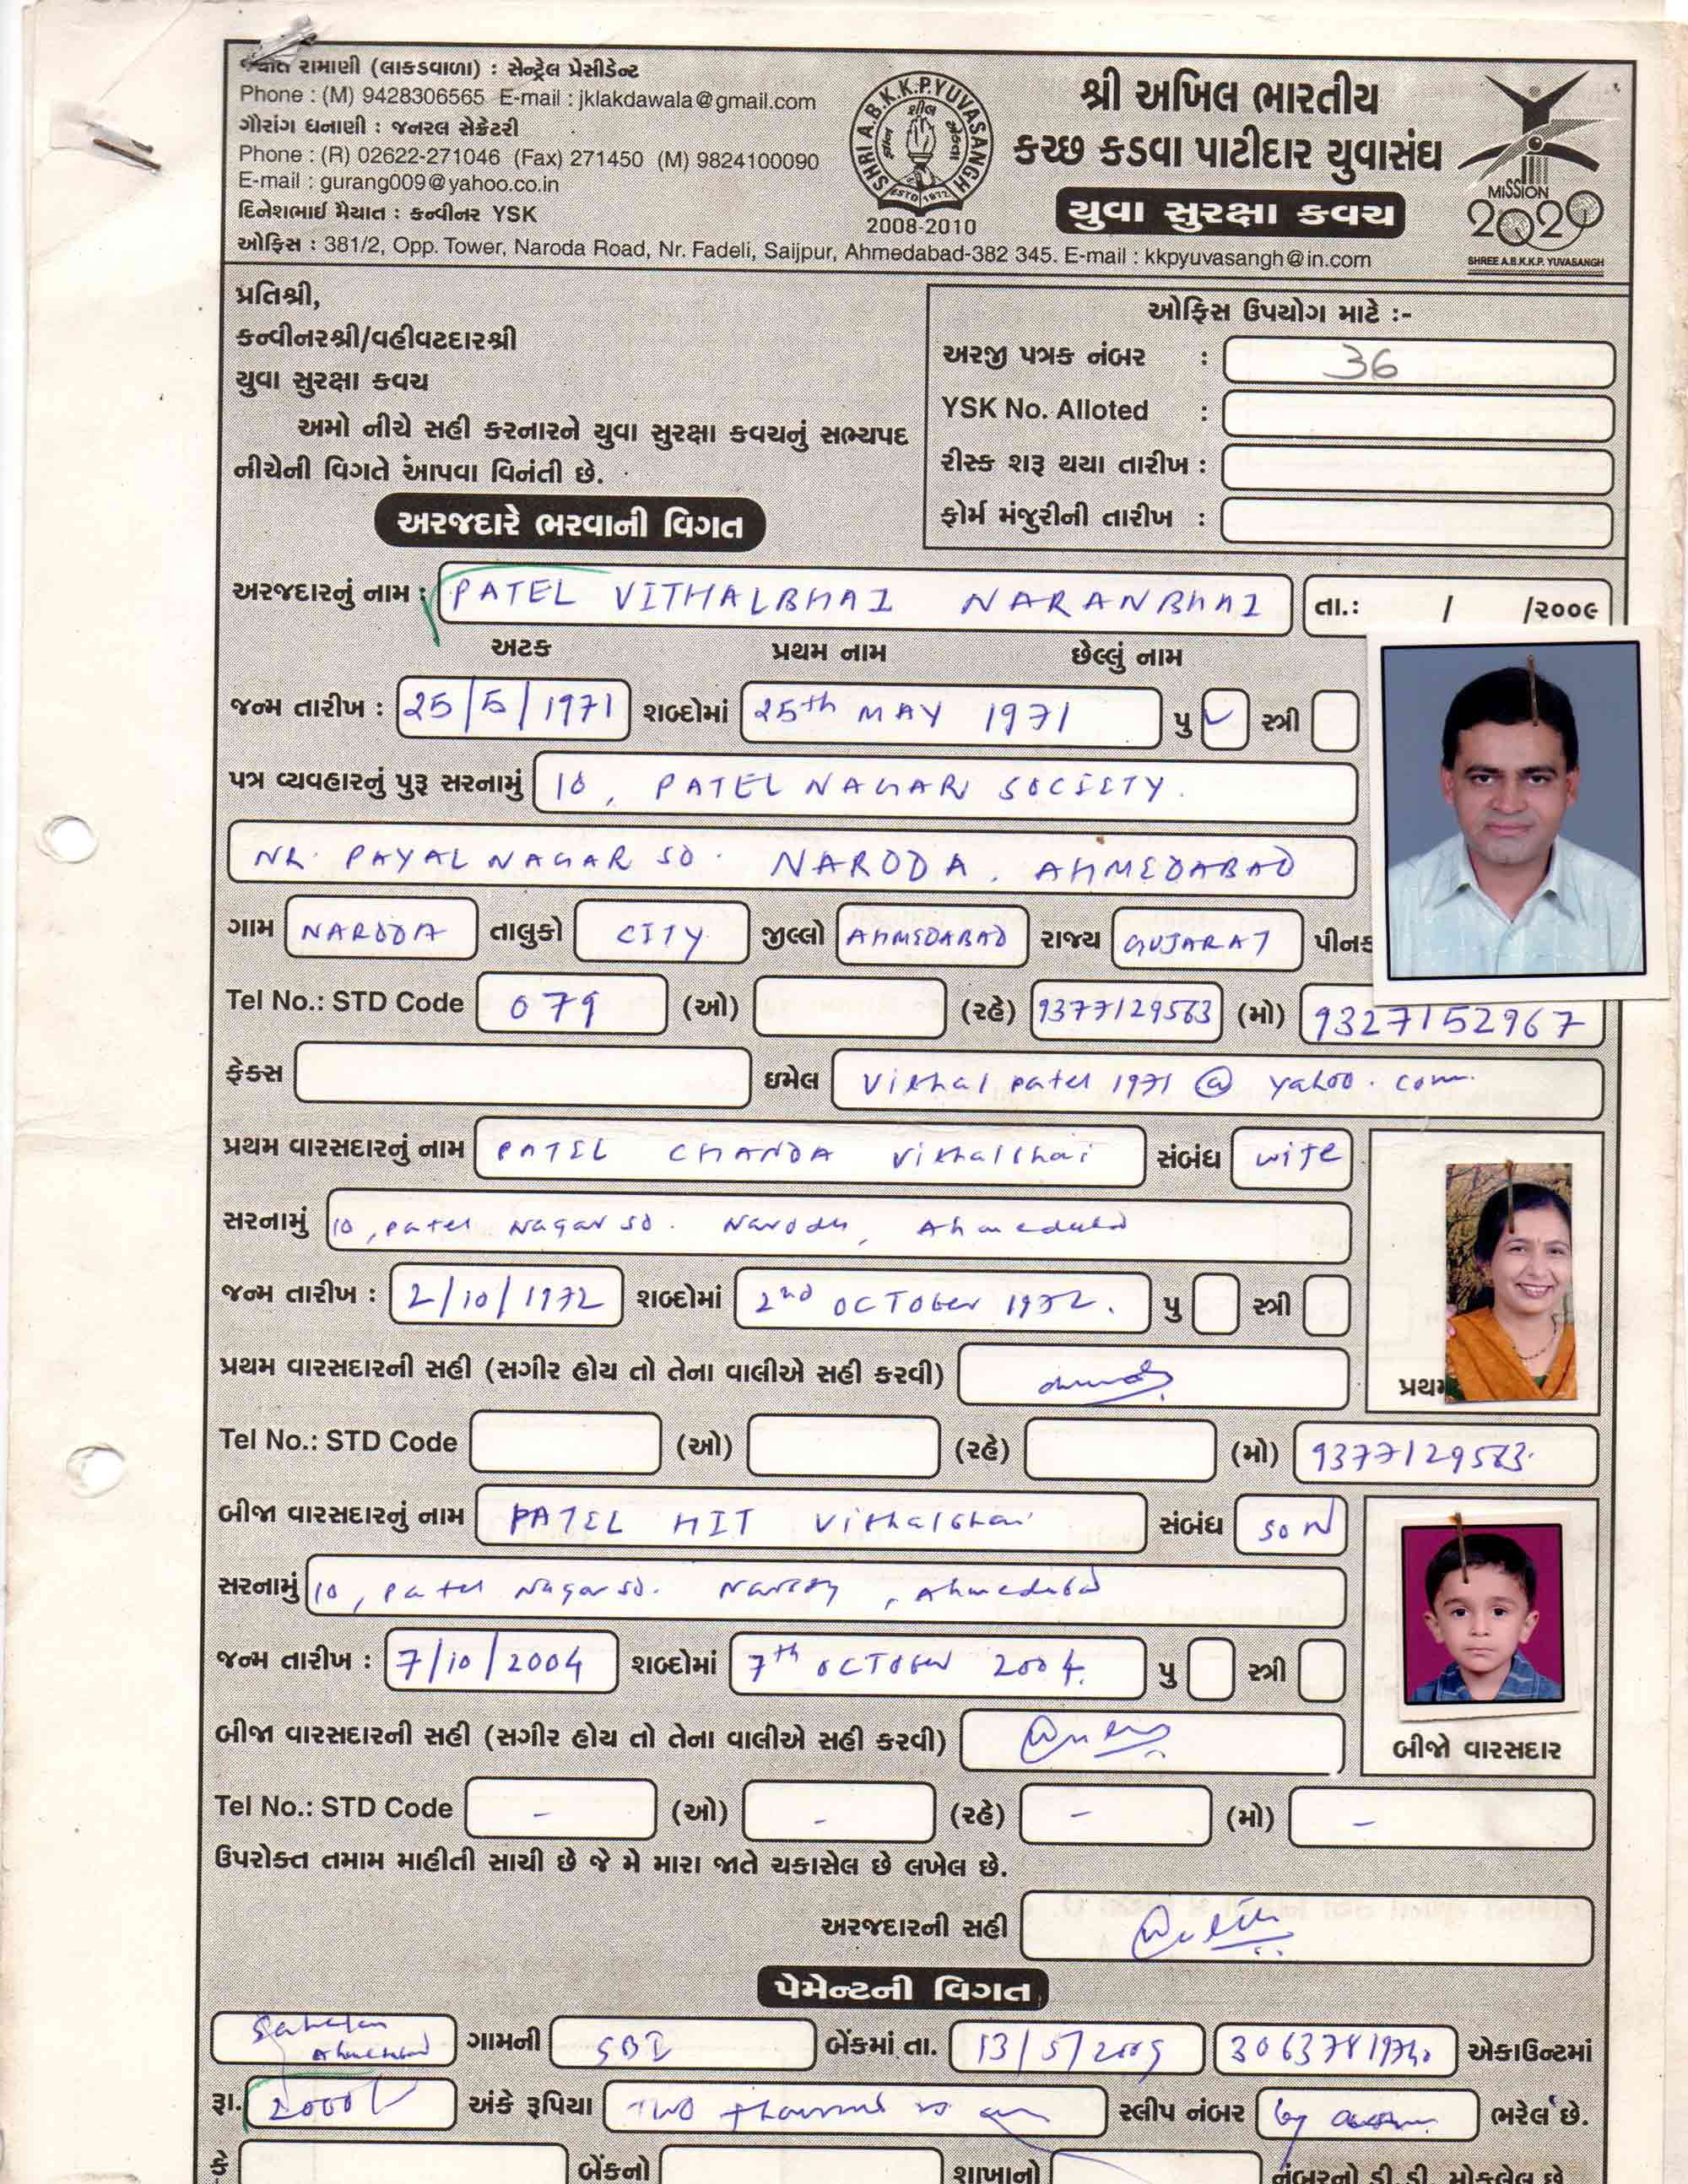 રામાણી (લાકડવાળા) : સેન્ટ્રેલ પ્રેસીડેન્ટ
Phone : (M) 9428306565 E-mail : jklakdawala@gmail.com
ગૌરાંગ ધનાણી : જનરલ સેક્રેટરી
Phone : (R) 02622-271046 (Fax) 271450 (M) 9824100090
E-mail : gurang009@yahoo.co.in
દિનેશભાઈ મૈયાત : કન્વીનર YSK
ઓફિસ : 381/2, Opp. Tower, Naroda Road, Nr. Fadeli, Saijpur, Ahmedabad-382 345. E-mail : kkpyuvasangh@in.com
SHRI A.B.K.K.P. YUVASANGH
ESTD 1972
2008-2010
શ્રી અખિલ ભારતીય
કચ્છ કડવા પાટીદાર યુવાસંઘ
યુવા સુરક્ષા કવચ
MISSION
2020
SHREE A.B.K.K.P. YUVASANGH
પ્રતિશ્રી,
કન્વીનરશ્રી/વહીવટદારશ્રી
યુવા સુરક્ષા કવચ
અમો નીચે સહી કરનારને યુવા સુરક્ષા કવચનું સભ્યપદ
નીચેની વિગતે આપવા વિનંતી છે.
ઓફિસ ઉપયોગ માટે :-
અરજી પત્રક નંબર : 36
YSK No. Alloted :
રીસ્ક શરૂ થયા તારીખ :
ફોર્મ મંજુરીની તારીખ :
અરજદારે ભરવાની વિગત
અરજદારનું નામ : PATEL VITHALBHAI NARANBHAI તા.: / /૨૦૦૯
અટક પ્રથમ નામ છેલ્લું નામ
જન્મ તારીખ : 25/5/1971 શબ્દોમાં 25th MAY 1971 પુ ✓ સ્ત્રી
પત્ર વ્યવહારનું પુરૂ સરનામું 10, PATEL NAGAR SOCIETY.
NR. PAYAL NAGAR SO. NARODA, AHMEDABAD
ગામ NARODA તાલુકો CITY જીલ્લો AHMEDABAD રાજ્ય GUJARAT પીનક
Tel No.: STD Code 079 (ઓ) (રહે) 9377129583 (મો) 9327152967
ફેક્સ ઇમેલ vithalpatel1971@yahoo.com
પ્રથમ વારસદારનું નામ PATEL CHANDA Vithalbhai સંબંધ wife
સરનામું 10, patel Nagar so. Naroda, Ahmedabad
જન્મ તારીખ : 2/10/1972 શબ્દોમાં 2nd OCTOber 1972. પુ સ્ત્રી
પ્રથમ વારસદારની સહી (સગીર હોય તો તેના વાલીએ સહી કરવી)
પ્રથમ
Tel No.: STD Code (ઓ) (રહે) (મો) 9377129583.
બીજા વારસદારનું નામ PATEL HIT Vithalbhai સંબંધ SON
સરનામું 10, patel Nagar so. Naroda, Ahmedabad
જન્મ તારીખ : 7/10/2004 શબ્દોમાં 7th OCTOber 2004. પુ સ્ત્રી
બીજા વારસદારની સહી (સગીર હોય તો તેના વાલીએ સહી કરવી)
બીજો વારસદાર
Tel No.: STD Code - (ઓ) - (રહે) - (મો) -
ઉપરોક્ત તમામ માહીતી સાચી છે જે મે મારા જાતે ચકાસેલ છે લખેલ છે.
અરજદારની સહી
પેમેન્ટની વિગત
Ahmedabad ગામની SBI બેંકમાં તા. 13/5/2009 એકાઉન્ટમાં
રૂા. 2000/ અંકે રૂપિયા Two thousand સ્લીપ નંબર by ભરેલ છે.
કે બેંકનો શાખાનો નંબરનો ડી.ડી. મોકલેલ છે